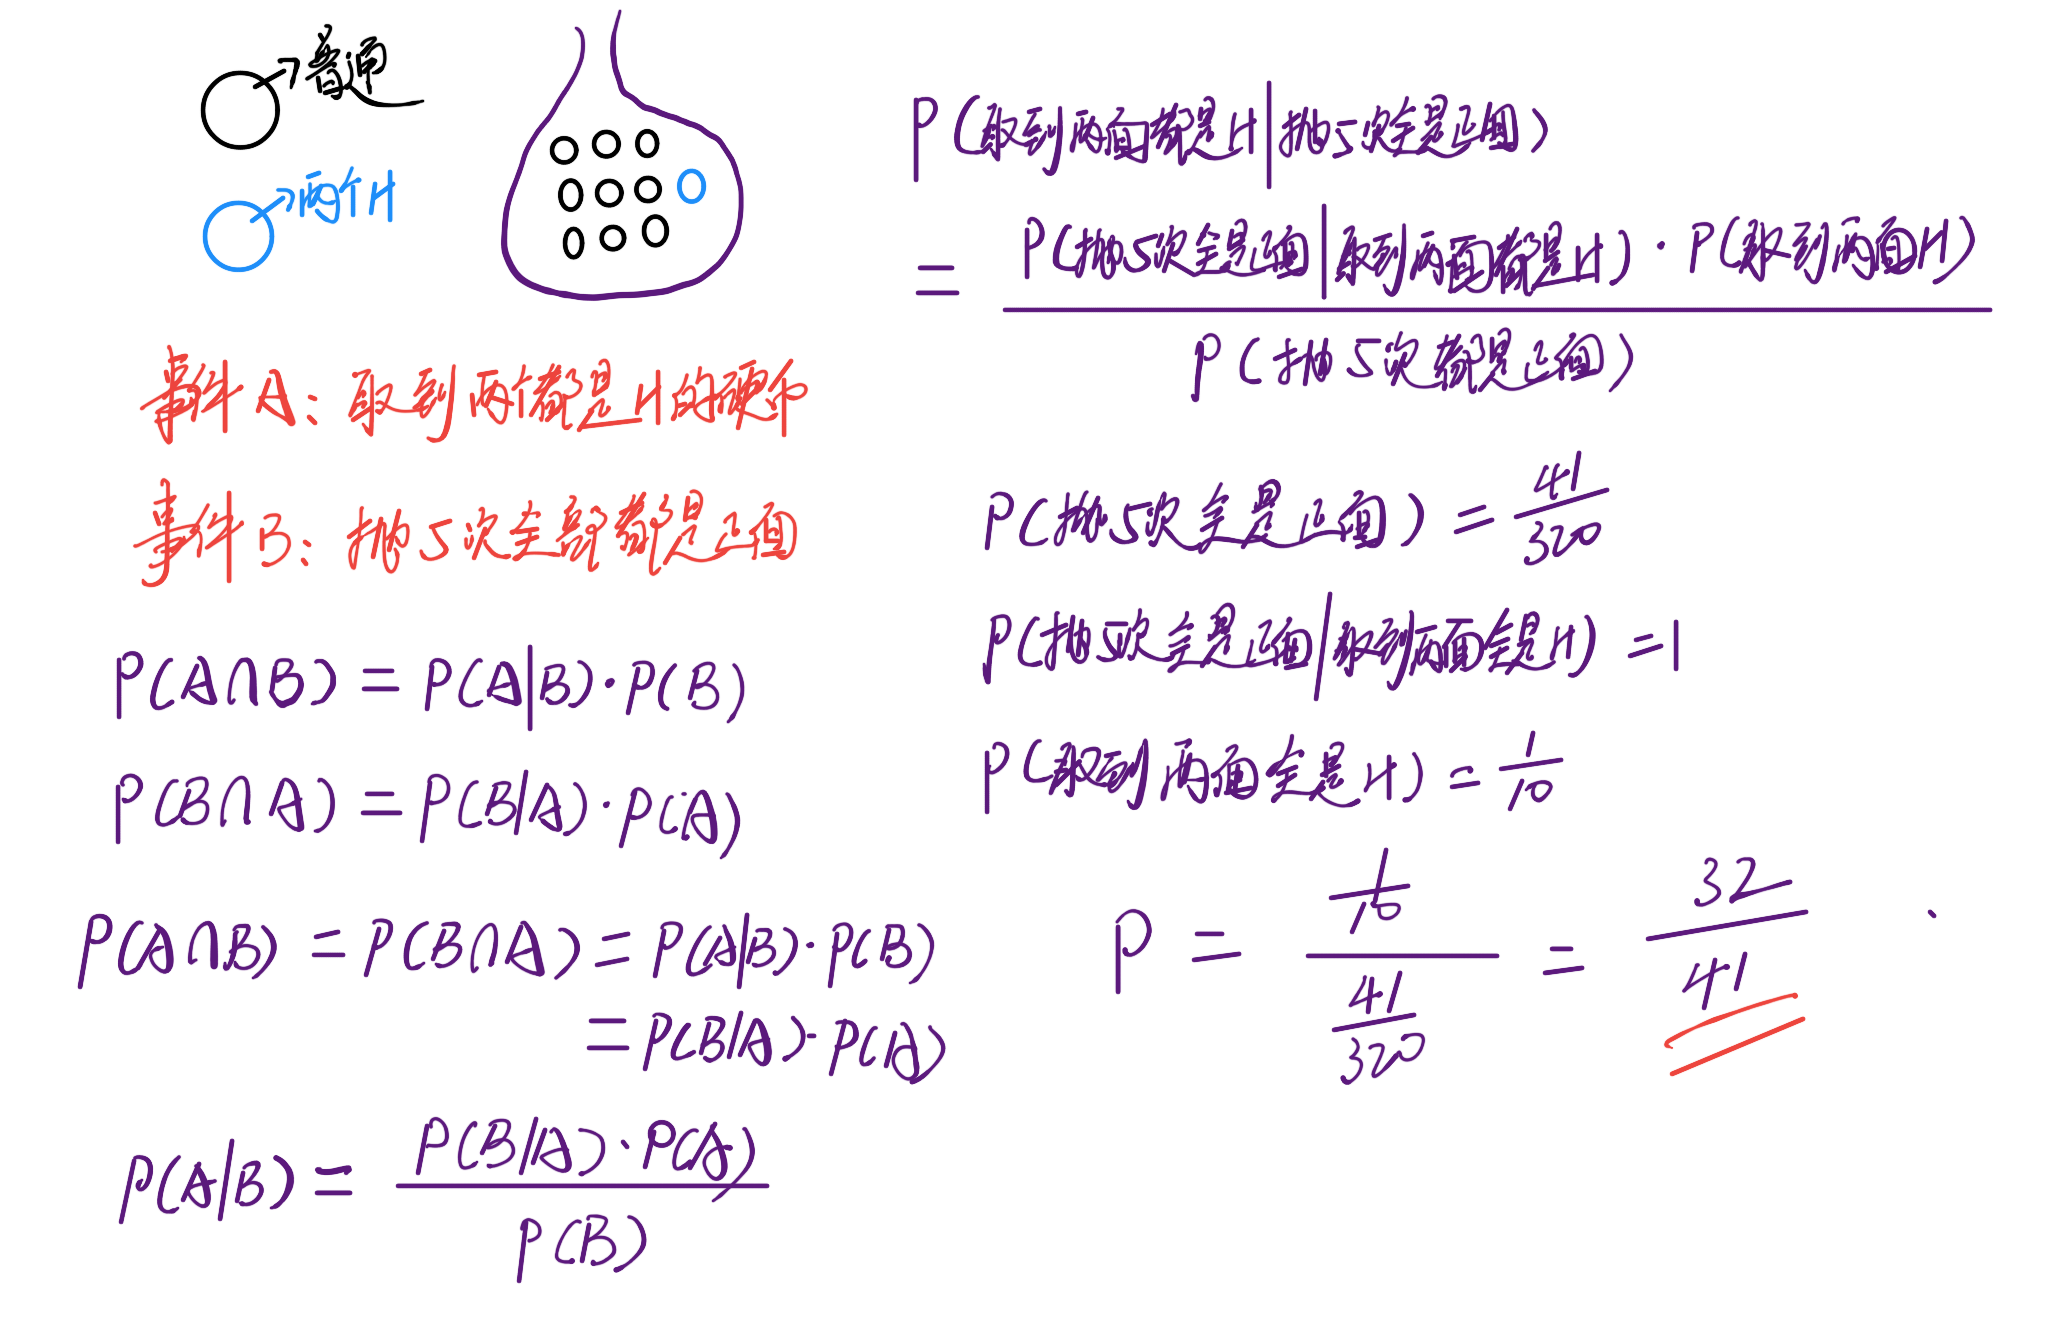 普通
两个H
事件A：取到两个都是H的硬币
事件B：抛5次全部都是正面
P(A∩B) = P(A|B)·P(B)
P(B∩A) = P(B|A)·P(A)
P(A∩B) = P(B∩A) = P(A|B)·P(B)
= P(B|A)·P(A)
P(A|B) = P(B|A)·P(A) / P(B)
P(取到两面都是H|抛5次全是正面)
= P(抛5次全是正面|取到两面都是H)·P(取到两面H) / P(抛5次都是正面)
P(抛5次全是正面) = 41/320
P(抛5次全是正面|取到两面全是H) = 1
P(取到两面全是H) = 1/10
P = 1/10 / 41/320 = 32/41